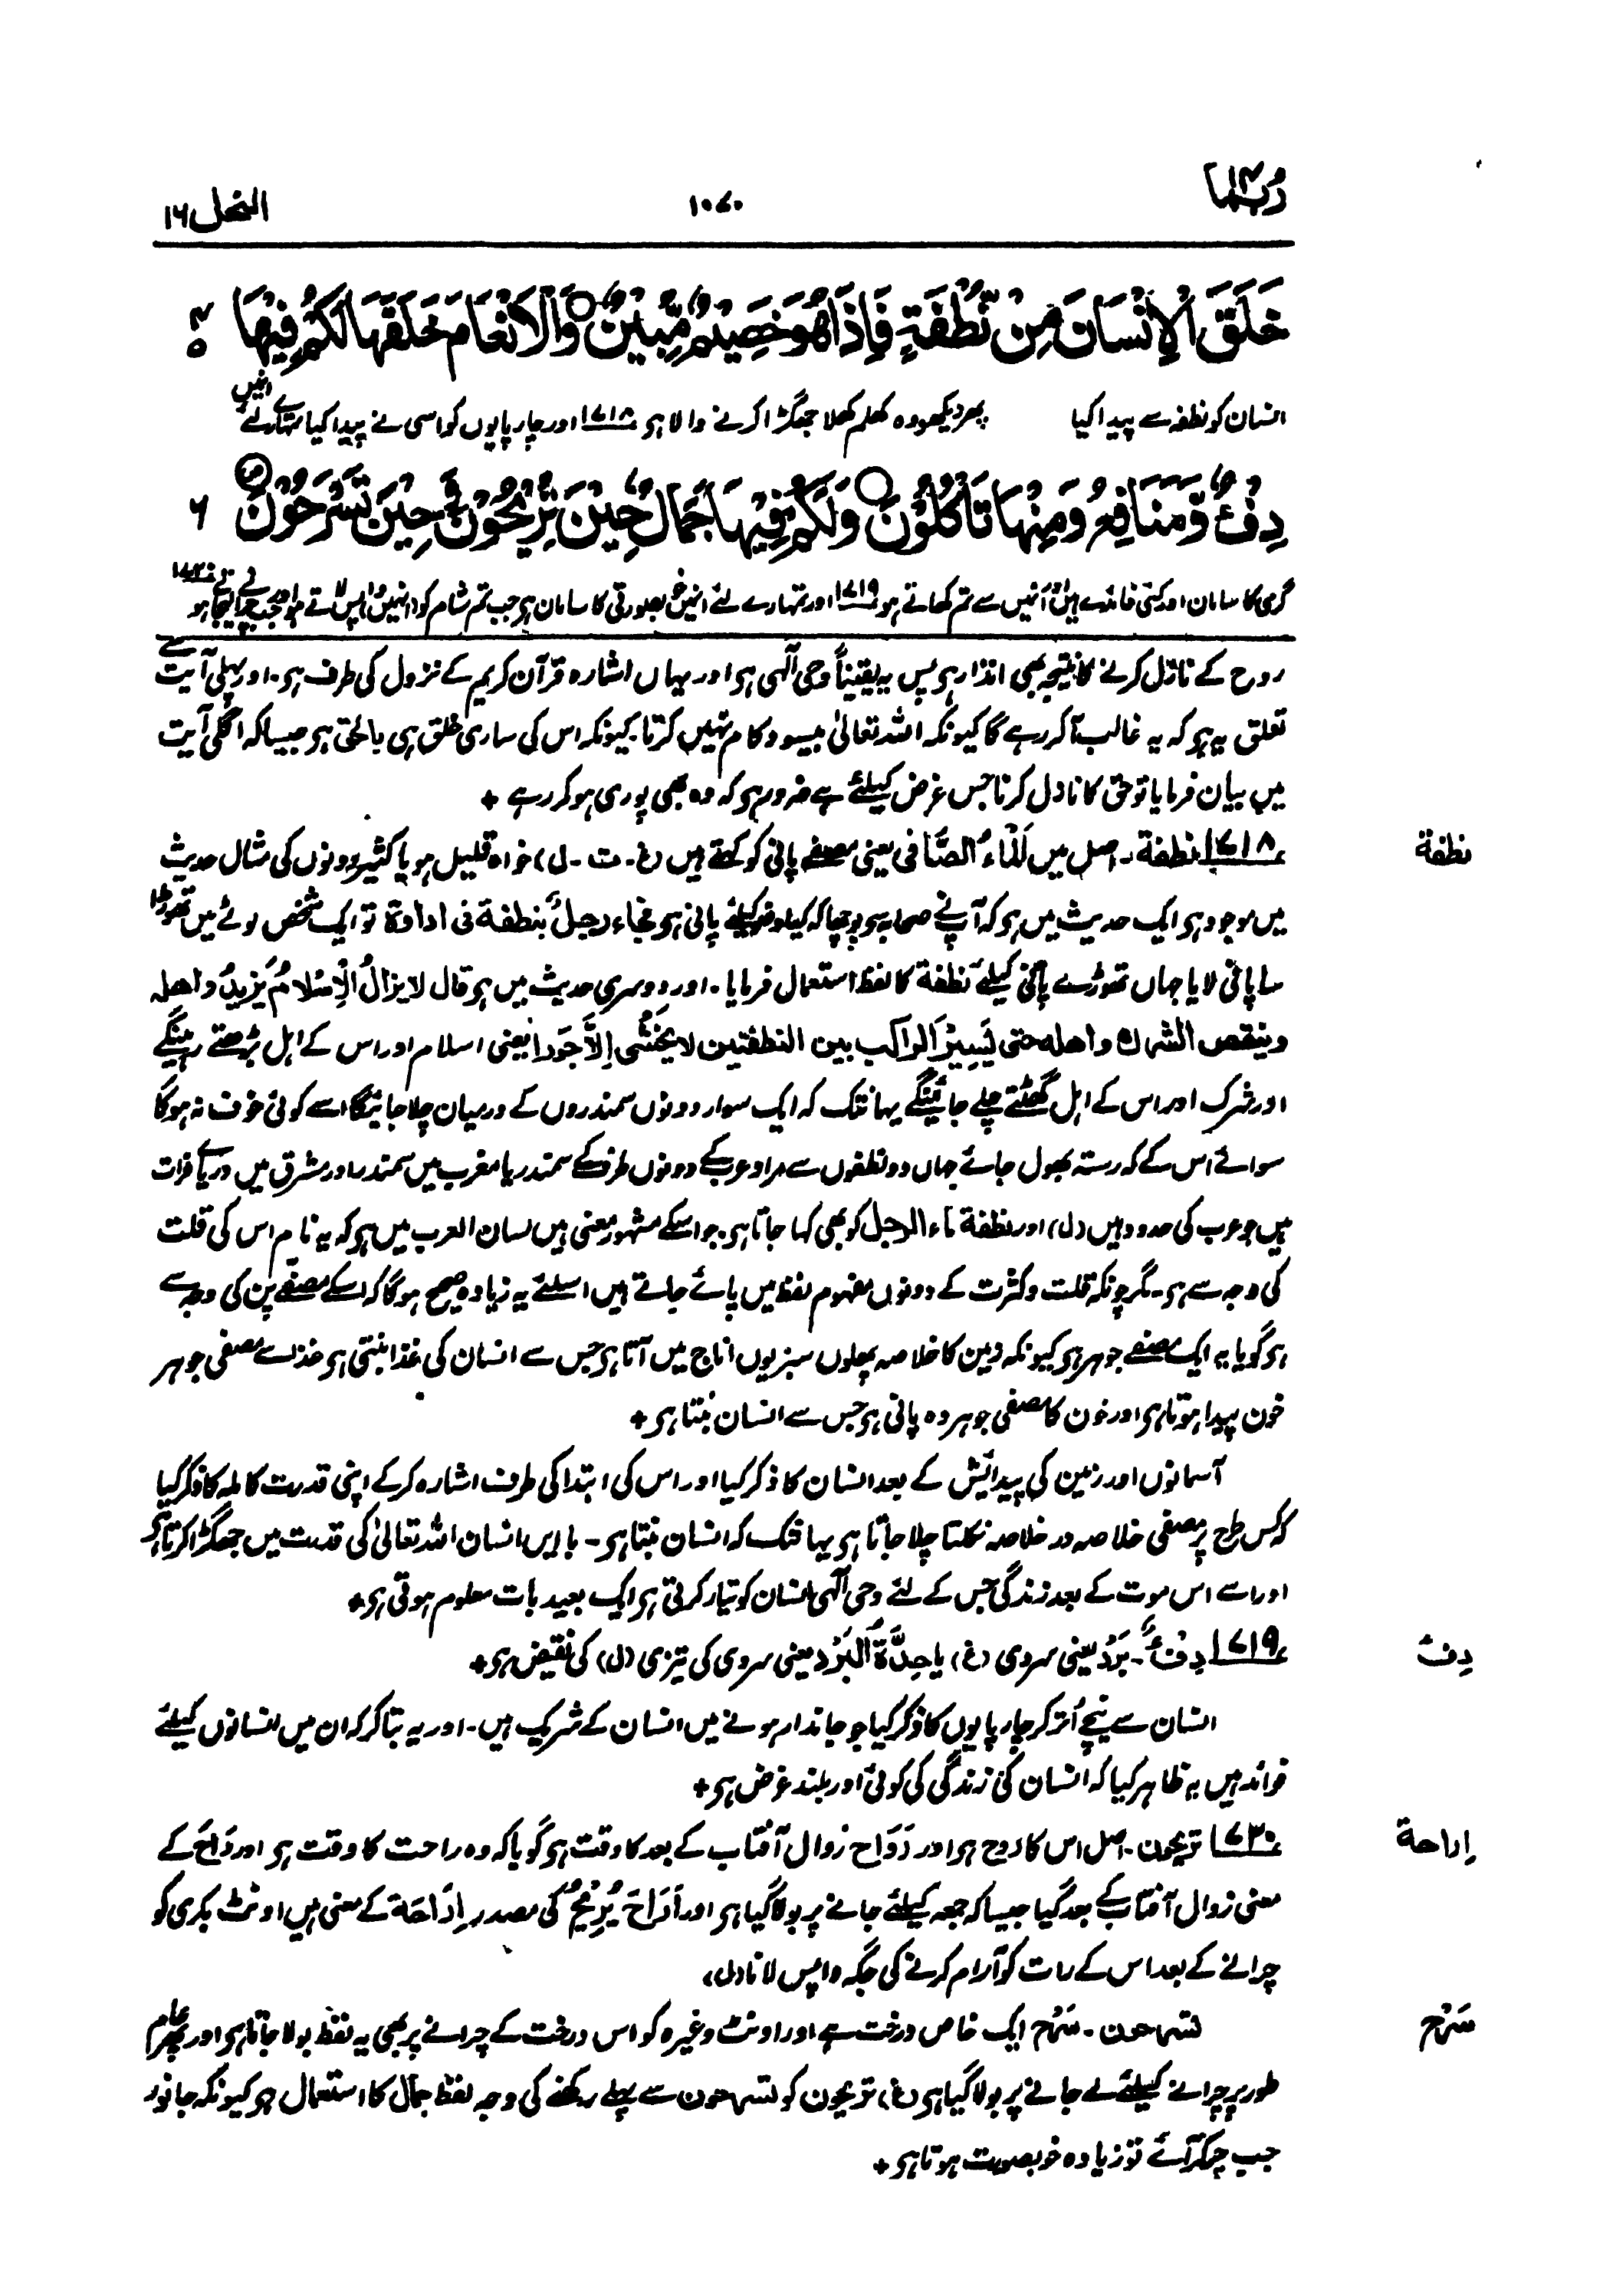 ربما ١٤
١٠٧٠
النحل ١٦
خَلَقَ الْإِنْسَانَ مِنْ نُّطْفَةٍ فَإِذَا هُوَ خَصِيْمٌ مُّبِيْنٌ ○ وَالْاَنْعَامَ خَلَقَهَا لَكُمْ فِيْهَا
۴
۵
انسان کو نطفہ سے پیدا کیا پھر دیکھو وہ کھلم کھلا جھگڑا کرنے والا ہر ۱۷۱۸ اور چارپایوں کو اسی نے پیدا کیا تمہارے لئے انہیں
دِفْءٌ وَّمَنَافِعُ وَمِنْهَا تَاْكُلُوْنَ ○ وَلَكُمْ فِيْهَا جَمَالٌ حِيْنَ تُرِيْحُوْنَ وَحِيْنَ تَسْرَحُوْنَ
۶
گرمی کا سامان اور کئی فائدے ہیں اور انہیں سے تم کھاتے ہو ۱۷۱۹ اور تمہارے لئے انہیں خوبصورتی کا سامان ہر جب تم شام کو (انہیں) واپس لاتے ہو اور جب چرانے لیجاتے ہو
روح کے نازل کرنے کا نتیجہ بھی انذار ہر پس یہ یقیناً وحی الٰہی ہر اور یہاں اشارہ قرآن کریم کے نزول کی طرف ہر۔ اور پہلی آیت سے
تعلق یہ ہر کہ یہ غالب آکر رہے گا کیونکہ اللہ تعالیٰ بیسود کام نہیں کرتا۔ کیونکہ اس کی ساری خلق ہی بالحق ہر جیسا کہ اگلی آیت
میں بیان فرمایا تو حق کا نازل کرنا جس غرض کیلئے ہے ضرور ہر کہ وہ بھی پوری ہو کر رہے +
نطفة
۱۷۱۸ نطفة۔ اصل میں اَلْمَاءُ الصَّافی یعنی مصفے پانی کو کہتے ہیں (غ۔ ت۔ ل) خواہ قلیل ہو یا کثیر دونوں کی مثال حدیث
میں موجود ہر ایک حدیث میں ہر کہ آپنے صحابہ سے پوچھا کہ کیا وضو کیلئے پانی ہر فجاء رجلٌ بنطفة فی اداوة تو ایک شخص لوٹے میں تھوڑا
سا پانی لایا جہاں تھوڑے پانی کیلئے نطفة کا لفظ استعمال فرمایا۔ اور دوسری حدیث میں ہر قال لایزالُ الْاِسْلامُ یَزِیدُ و اھلہ
وینقص الشرك و اھلہ حتی یَسِیْرَ الراکب بین النطفتین لا یَخْشٰی اِلَّا جَورا یعنی اسلام اور اس کے اہل بڑھتے رہینگے
اور شرک اور اس کے اہل گھٹتے چلے جائینگے یہانتک کہ ایک سوار دونوں سمندروں کے درمیان چلا جائیگا اسے کوئی خوف نہ ہوگا
سوائے اس کے کہ رستہ بھول جائے جہاں دو نطفوں سے مراد عرب کے دونوں طرف کے سمندر یا مغرب میں سمندر اور مشرق میں دریائے فرات
ہیں جو عرب کی حدود ہیں (ل) اور نطفة ماء الرجل کو بھی کہا جاتا ہر۔ جو اسکے مشہور معنی ہیں لسان العرب میں ہر کہ یہ نام اس کی قلت
کی وجہ سے ہر۔ مگر چونکہ قلت و کثرت کے دونوں مفہوم لفظ میں پائے جاتے ہیں اسلئے یہ زیادہ صحیح ہوگا کہ اسکے مصفّے پن کی وجہ سے
ہر گویا یہ ایک مصفے جوہر ہر کیونکہ زمین کا خلاصہ پھلوں سبزیوں اناج میں آتا ہر جس سے انسان کی غذا بنتی ہر غذا سے مصفی جوہر
خون پیدا ہوتا ہر اور خون کا مصفی جوہر وہ پانی ہر جس سے انسان بنتا ہر +
آسمانوں اور زمین کی پیدائش کے بعد انسان کا ذکر کیا اور اس کی ابتدا کی طرف اشارہ کرکے اپنی قدرت کاملہ کا ذکر کیا
کہ کس طرح پر مصفی خلاصہ در خلاصہ نکلتا چلا جاتا ہر یہانتک کہ انسان بنتا ہر۔ باایں انسان اللہ تعالیٰ کی قدرت میں جھگڑا کرتا ہر
اور اسے اس موت کے بعد زندگی جس کے لئے وحی الٰہی انسان کو تیار کرتی ہر ایک بعید بات معلوم ہوتی ہر +
دِفء
۱۷۱۹ دِفْءٌ۔ بَرْدٌ یعنی سردی (غ) یا حِدَّةُ الْبَرْد یعنی سردی کی تیزی (ل) کی نقیض ہر +
انسان سے نیچے اُتر کر چارپایوں کا ذکر کیا جو جاندار ہونے میں انسان کے شریک ہیں۔ اور یہ بتا کر کہ ان میں انسانوں کیلئے
فوائد ہیں یہ ظاہر کیا کہ انسان کی زندگی کی کوئی اور بلند غرض ہر +
اِراحة
۱۷۲۰ تریحون۔ اصل اس کا روح ہر اور رَوَاح زوال آفتاب کے بعد کا وقت ہر گویا کہ وہ راحت کا وقت ہر اور رَاحَ کے
معنی زوال آفتاب کے بعد گیا جیسا کہ جمعہ کیلئے جانے پر بولا گیا ہر اور اَرَاحَ یُرِیْحُ کی مصدر اِرَاحَة کے معنی ہیں اونٹ بکری کو
چرانے کے بعد اس کے رات کو آرام کرنے کی جگہ واپس لانا (ل)
سَرْح
تسرحون۔ سَرْح ایک خاص درخت ہے اور اونٹ وغیرہ کو اس درخت کے چرانے پر بھی یہ لفظ بولا جاتا ہر اور پھر عام
طور پر چرانے کیلئے لے جانے پر بولا گیا ہر (غ) تریحون کو تسرحون سے پہلے رکھنے کی وجہ لفظ جمال کا استعمال ہر کیونکہ جانور
جب چرکر آئے تو زیادہ خوبصورت ہوتا ہر +